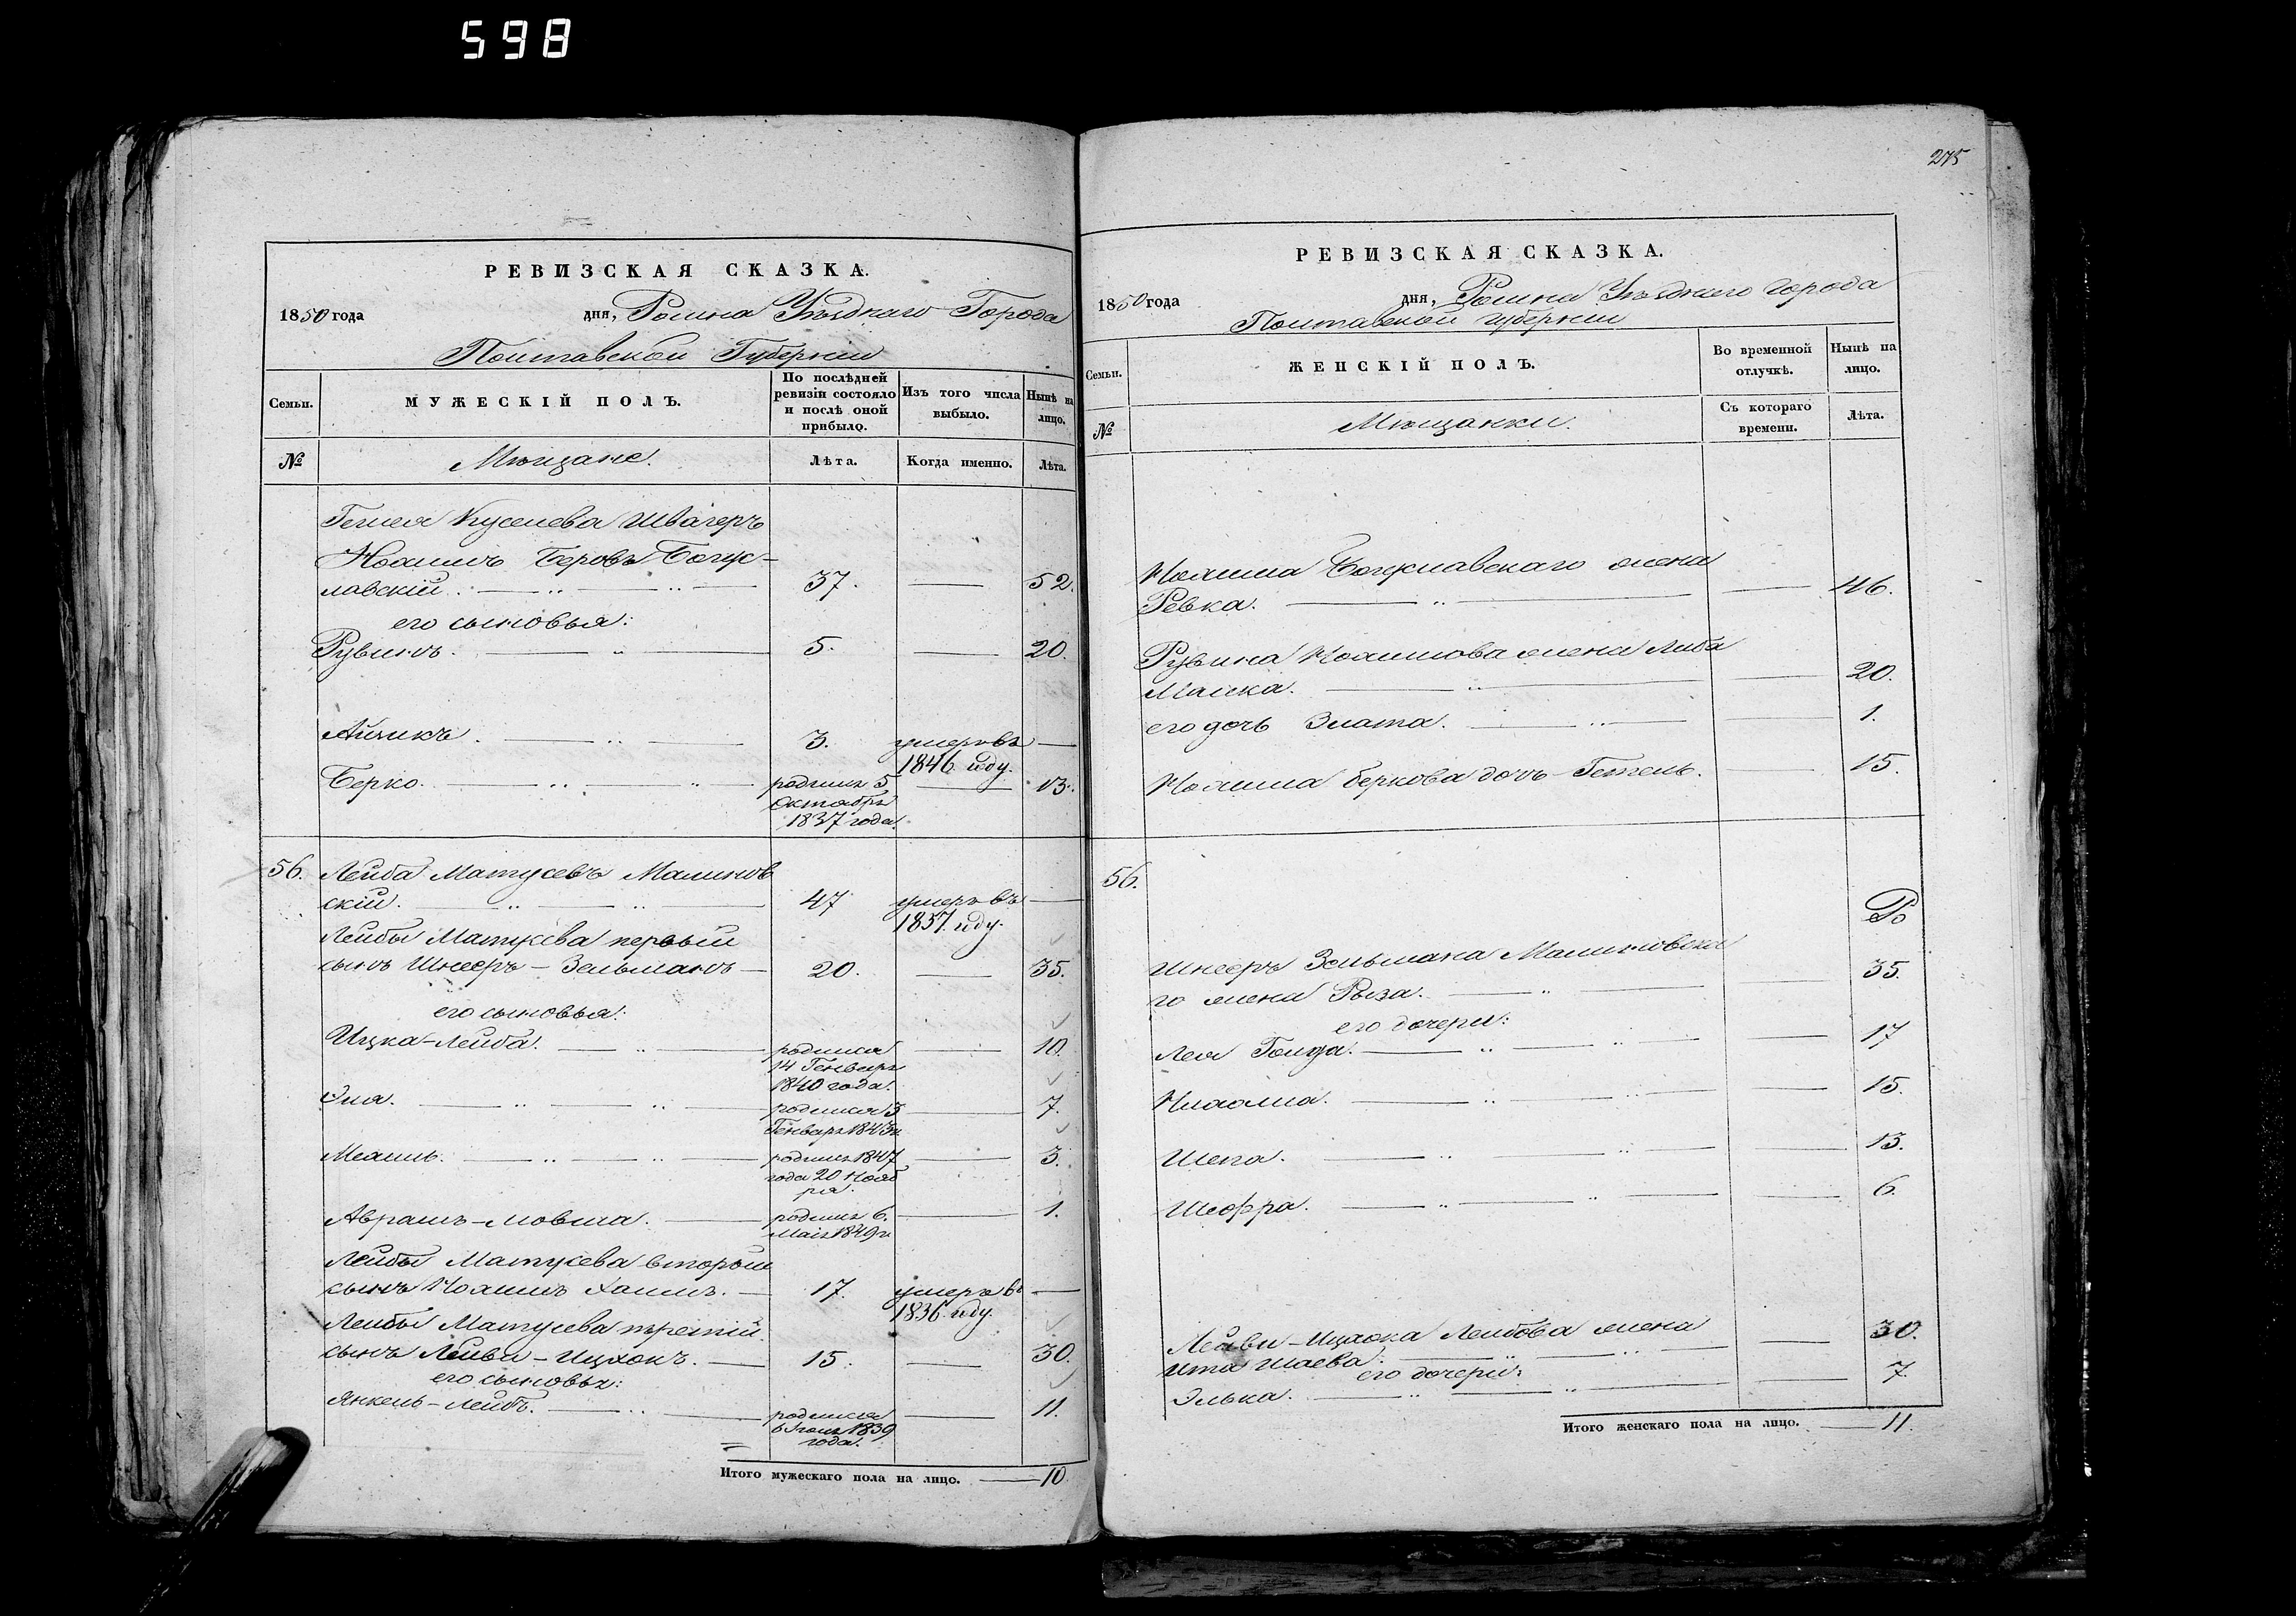 598
РЕВИЗСКАЯ СКАЗКА.
1850 года дня, Ромна Уѣзднаго Города
Полтавской Губерніи
Семьи. МУЖЕСКІЙ ПОЛЪ. По послѣдней ревизіи состояло и послѣ оной прибыло. Изъ того числа выбыло. Нынѣ на лицо.
№ Мѣщане. Лѣта. Когда именно. Лѣта.
Швагеръ
Беровъ Богу-
лавскій. 37. — 52.
его сыновья:
Рувинъ. 5. — 20.
Айзикъ. 3. умеръ въ —
1846 году.
Берко. родился 5 — 13.
Октября
1837 года.
56. Лейба Матусевъ Малинов
скій. 47 умеръ въ —
1837. году.
Лейбы Матусева первый
сынъ Шнееръ-Зельманъ — 20. — 35.
его сыновья:
Ицка-Лейба. родился — 10.
14 Генваря
1840 года.
Эля. родился 3 — 7.
Генваря 1843 г.
родился 1847 — 3.
года 20 Нояб
ря.
Аврамъ-Мовша. родился 6. — 1.
Маія 1849 г.
Лейбы Матусева вторый
сынъ Хаимъ. — 17. умеръ въ —
1836 году.
Лейбы Матусева третій
сынъ Лейви-Ицхокъ. — 15. — 30.
его сыновья:
Янкель-Лейбъ. родился — 11.
1839
года.
Итого мужескаго пола на лицо. — 10.
275
РЕВИЗСКАЯ СКАЗКА.
1850 года дня, Ромна Уѣзднаго города
Полтавской губерніи
Семьи. ЖЕНСКІЙ ПОЛЪ. Во временной отлучкѣ. Нынѣ на лицо.
№ Мѣщанки. Съ котораго времени. Лѣта.
Богуславскаго жена
Ревка. — 46.
Рувина жена Либа
Малка. — 20.
его дочь Злата. — 1.
Беркова дочь Гетель. — 15.
56.
Шнееръ Зельмана Малиновска
го жена Рыза. — 35.
его дочери:
Лея Голда. — 17
15.
13.
Шефра. — 6.
Лейви-Ицхока Лейбова жена — 30.
Ита Шаева.
его дочери:
Элька. — 7.
Итого женскаго пола на лицо. — 11.